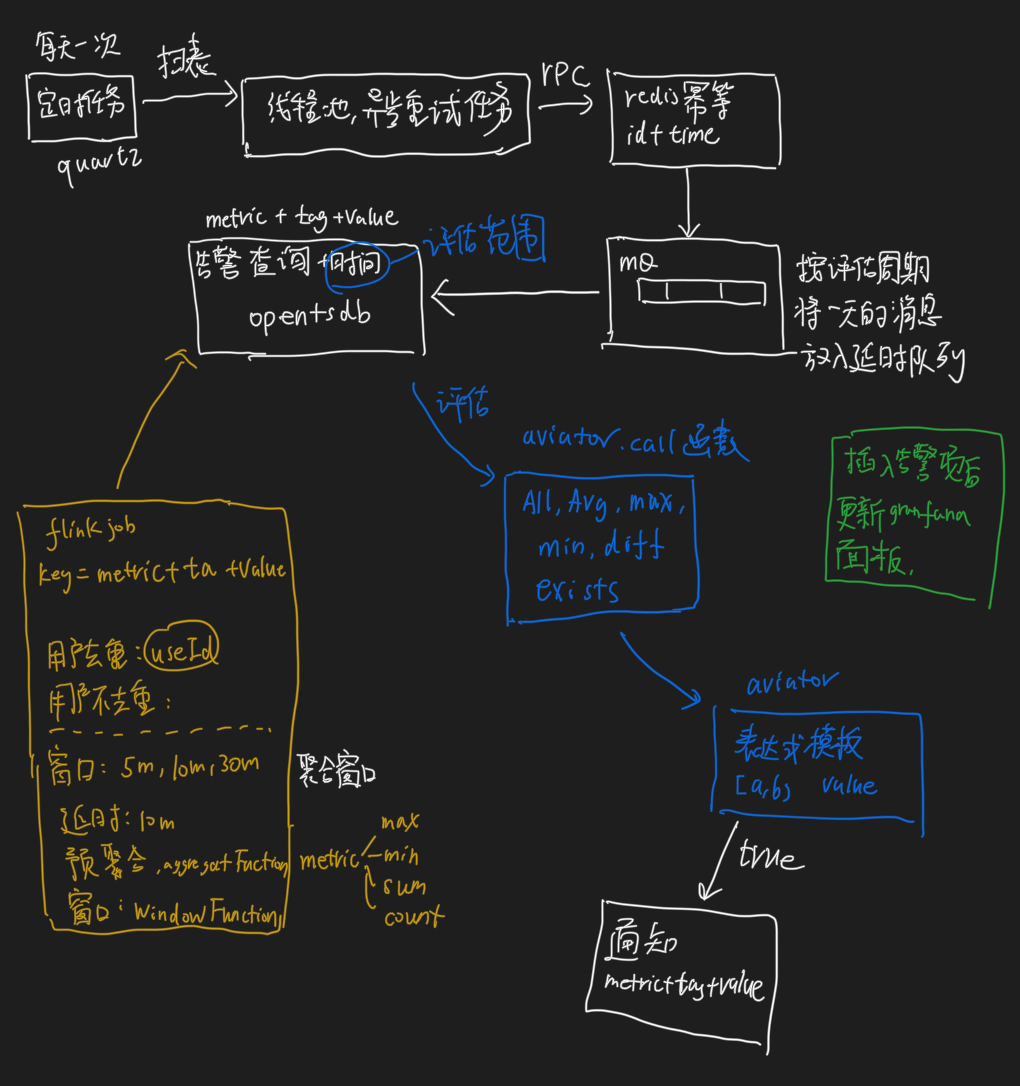 每天一次
定时任务
quartz
扫表
线程池,异常重试任务
rpc
redis幂等
id+time
mQ
按评估周期
将一天的消息
放入延时队列
metric + tag+value
告警查询+时间
opentsdb
评估范围
评估
aviator.call函数
All, Avg, max,
min, diff
exists
插入告警项后
更新granfana
面板,
aviator
表达式模板
[a,b) value
true
通知
metric+tag+value
flink job
key=metric+ta +Value
用户去重:useId
用户不去重:
窗口: 5m, 10m, 30m
延时: 10m
预聚合,aggregatFunction
窗口: WindowFunction
聚合窗口
metric
max
min
sum
count